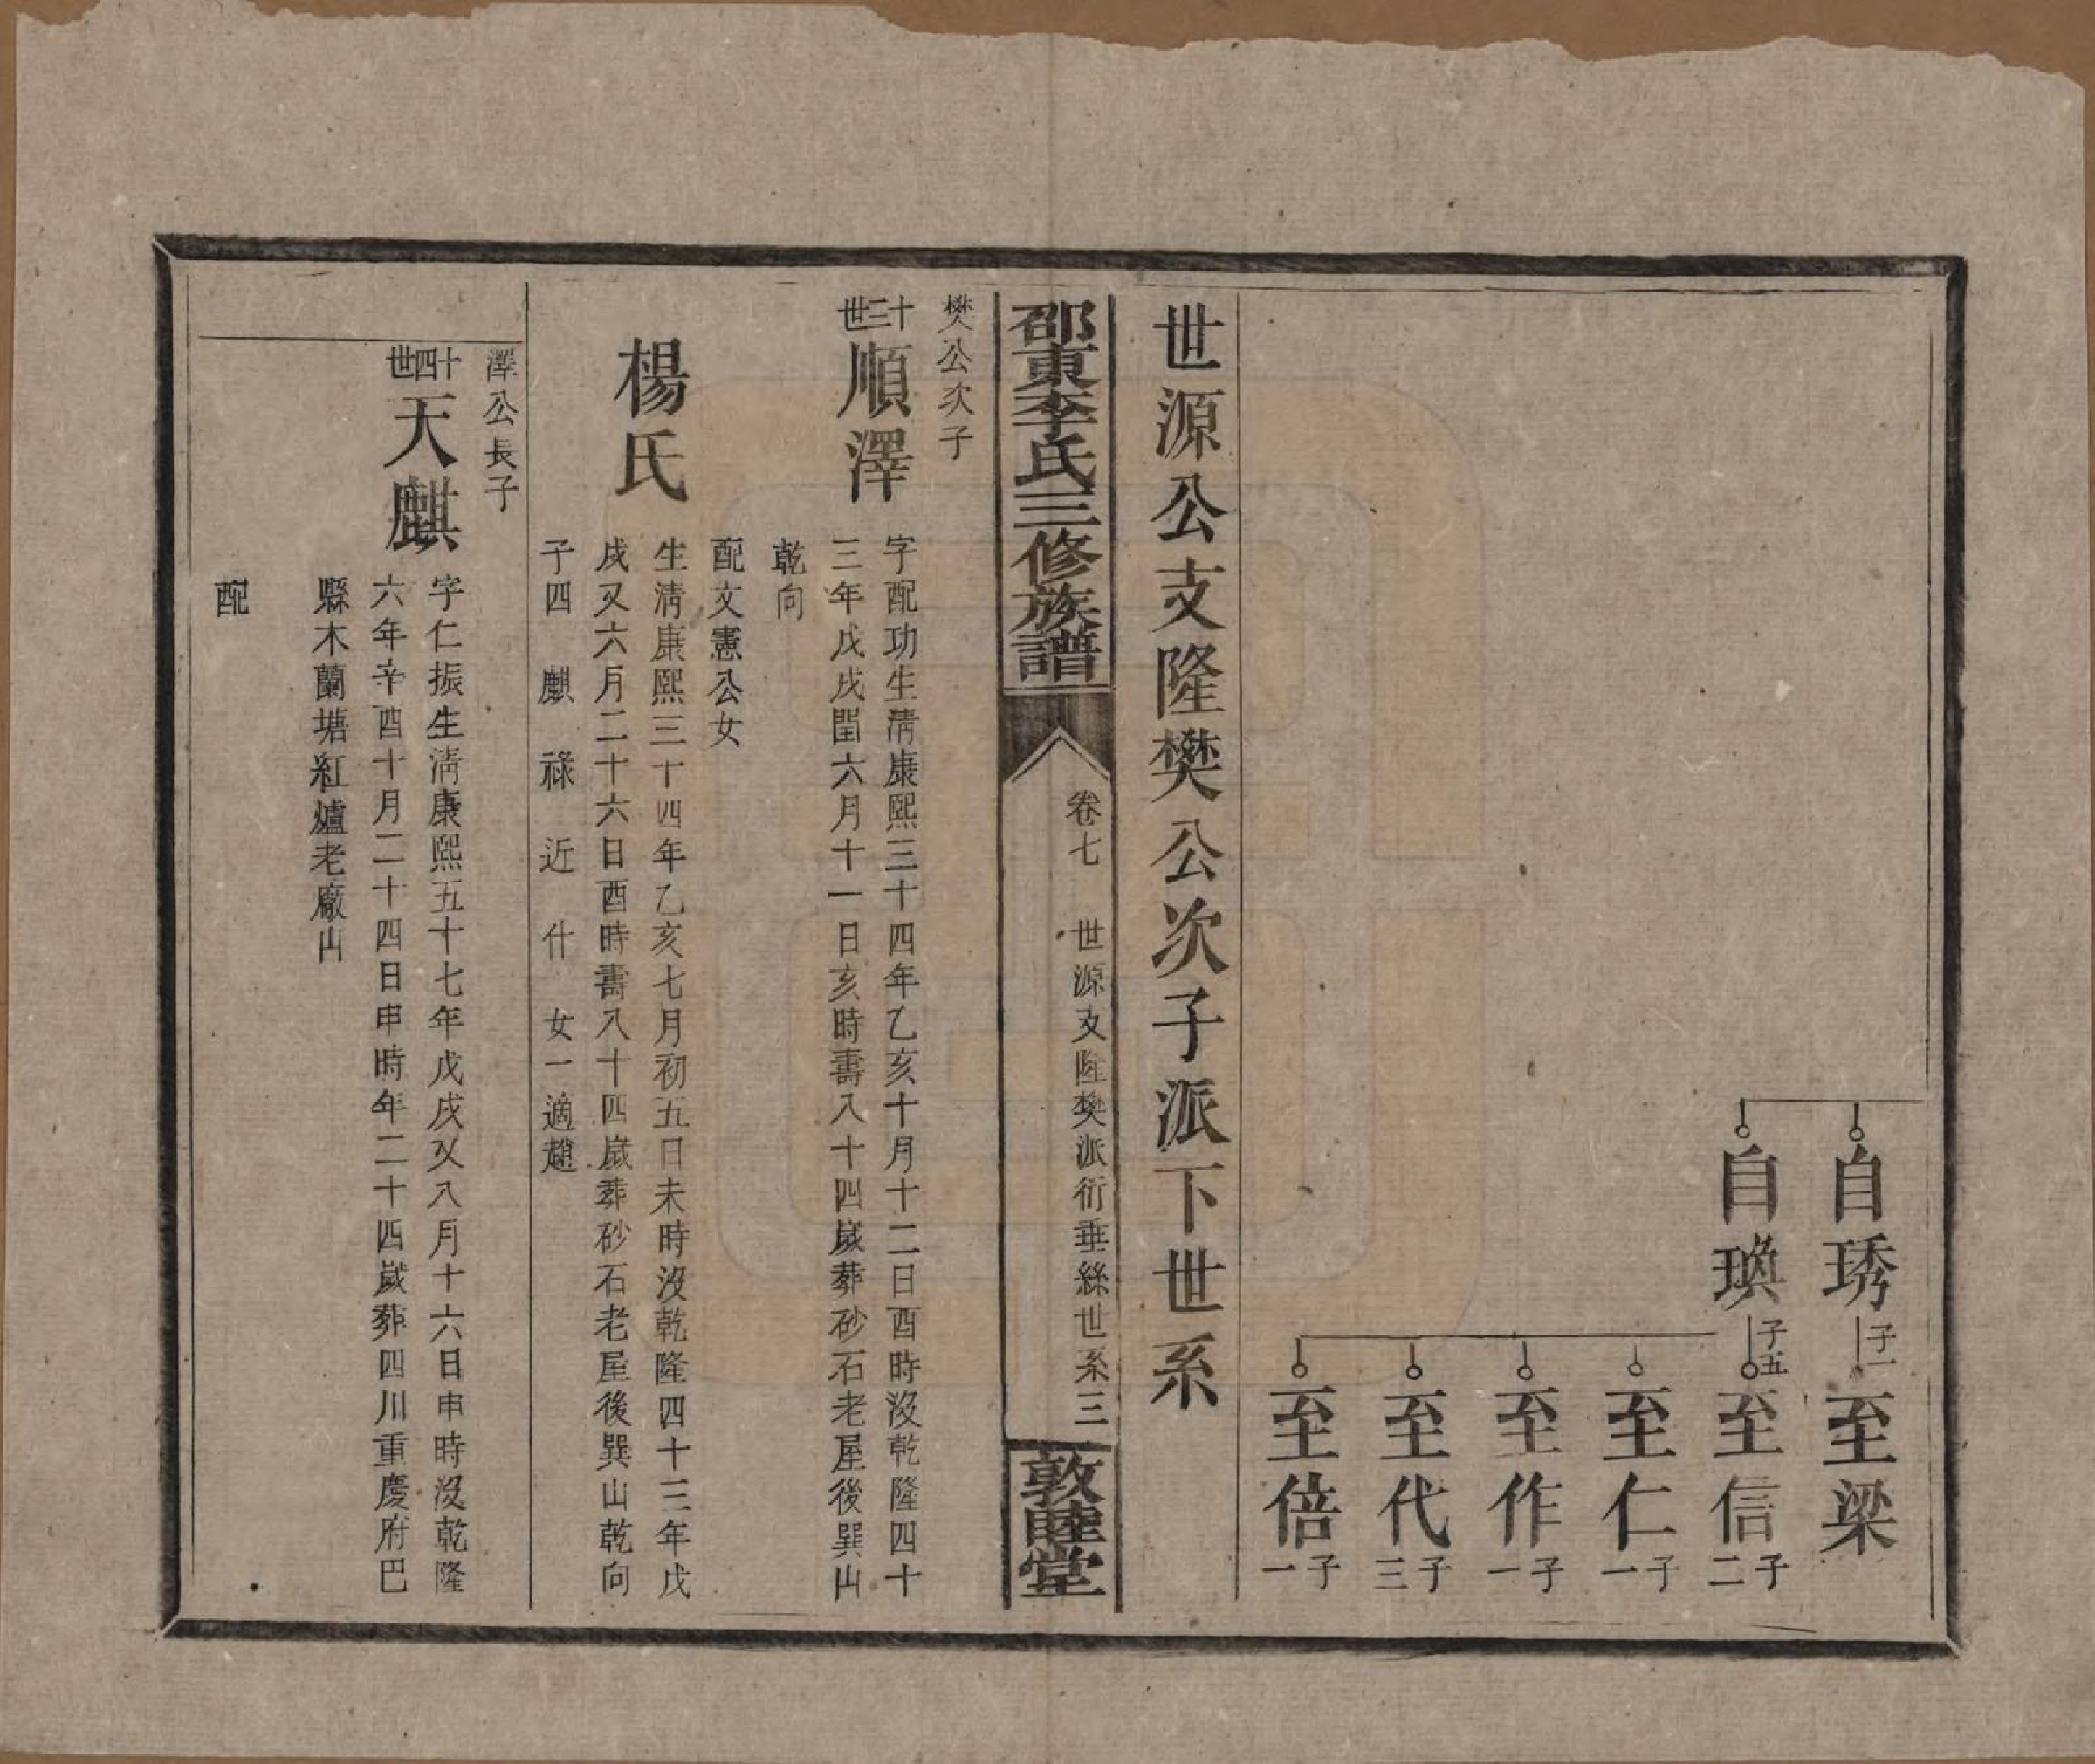 自琇 子一 至梁
自瑛 子五 至信 子二
至仁 子一
至作 子一
至代 子三
至倍 子一
世源公支隆樊公次子派下世系
邵東李氏三修族譜
卷七 世源支隆樊派衍垂絲世系 三
敦睦堂
樊公次子
十三世 順澤
字配功生淸康熙三十四年乙亥十月十二日酉時沒乾隆四十
三年戊戌閏六月十一日亥時壽八十四歲葬砂石老屋後巽山
乾向
配文憲公女
楊氏
生淸康熙三十四年乙亥七月初五日未時沒乾隆四十三年戊
戌又六月二十六日酉時壽八十四歲葬砂石老屋後巽山乾向
子四 麒 祿 近 什 女一適趙
澤公長子
十四世 天麒
字仁振生淸康熙五十七年戊戌又八月十六日申時沒乾隆
六年辛酉十月二十四日申時年二十四歲葬四川重慶府巴
縣木蘭塘紅爐老廠山
配